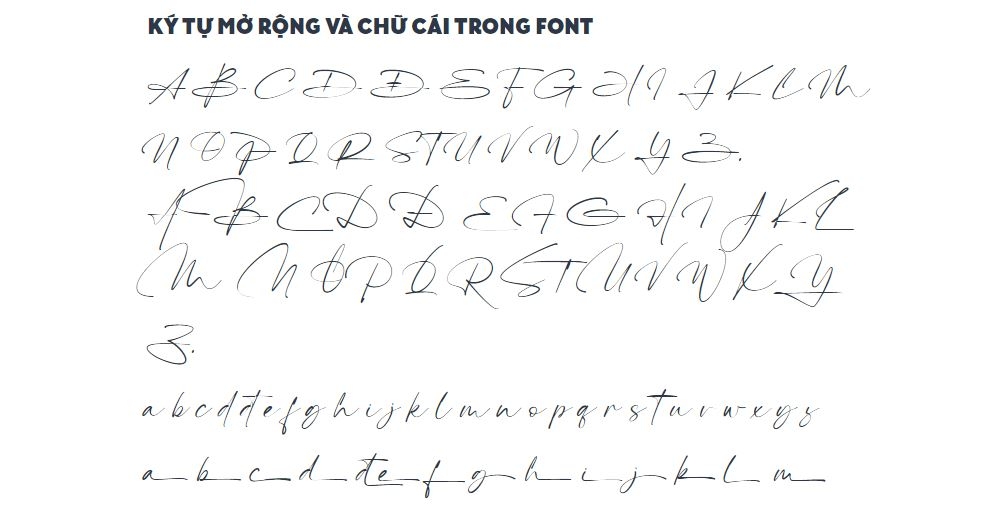 KÝ TỰ MỞ RỘNG VÀ CHỮ CÁI TRONG FONT
A B C D Đ E F G H I J K L M
N O P Q R S T U V W X Y Z.
A B C D Đ E F G H I J K L
M N O P Q R S T U V W X Y
Z.
a b c d đ e f g h i j k l m n o p q r s t u v w x y z
a b c d đ e f g h i j k l m